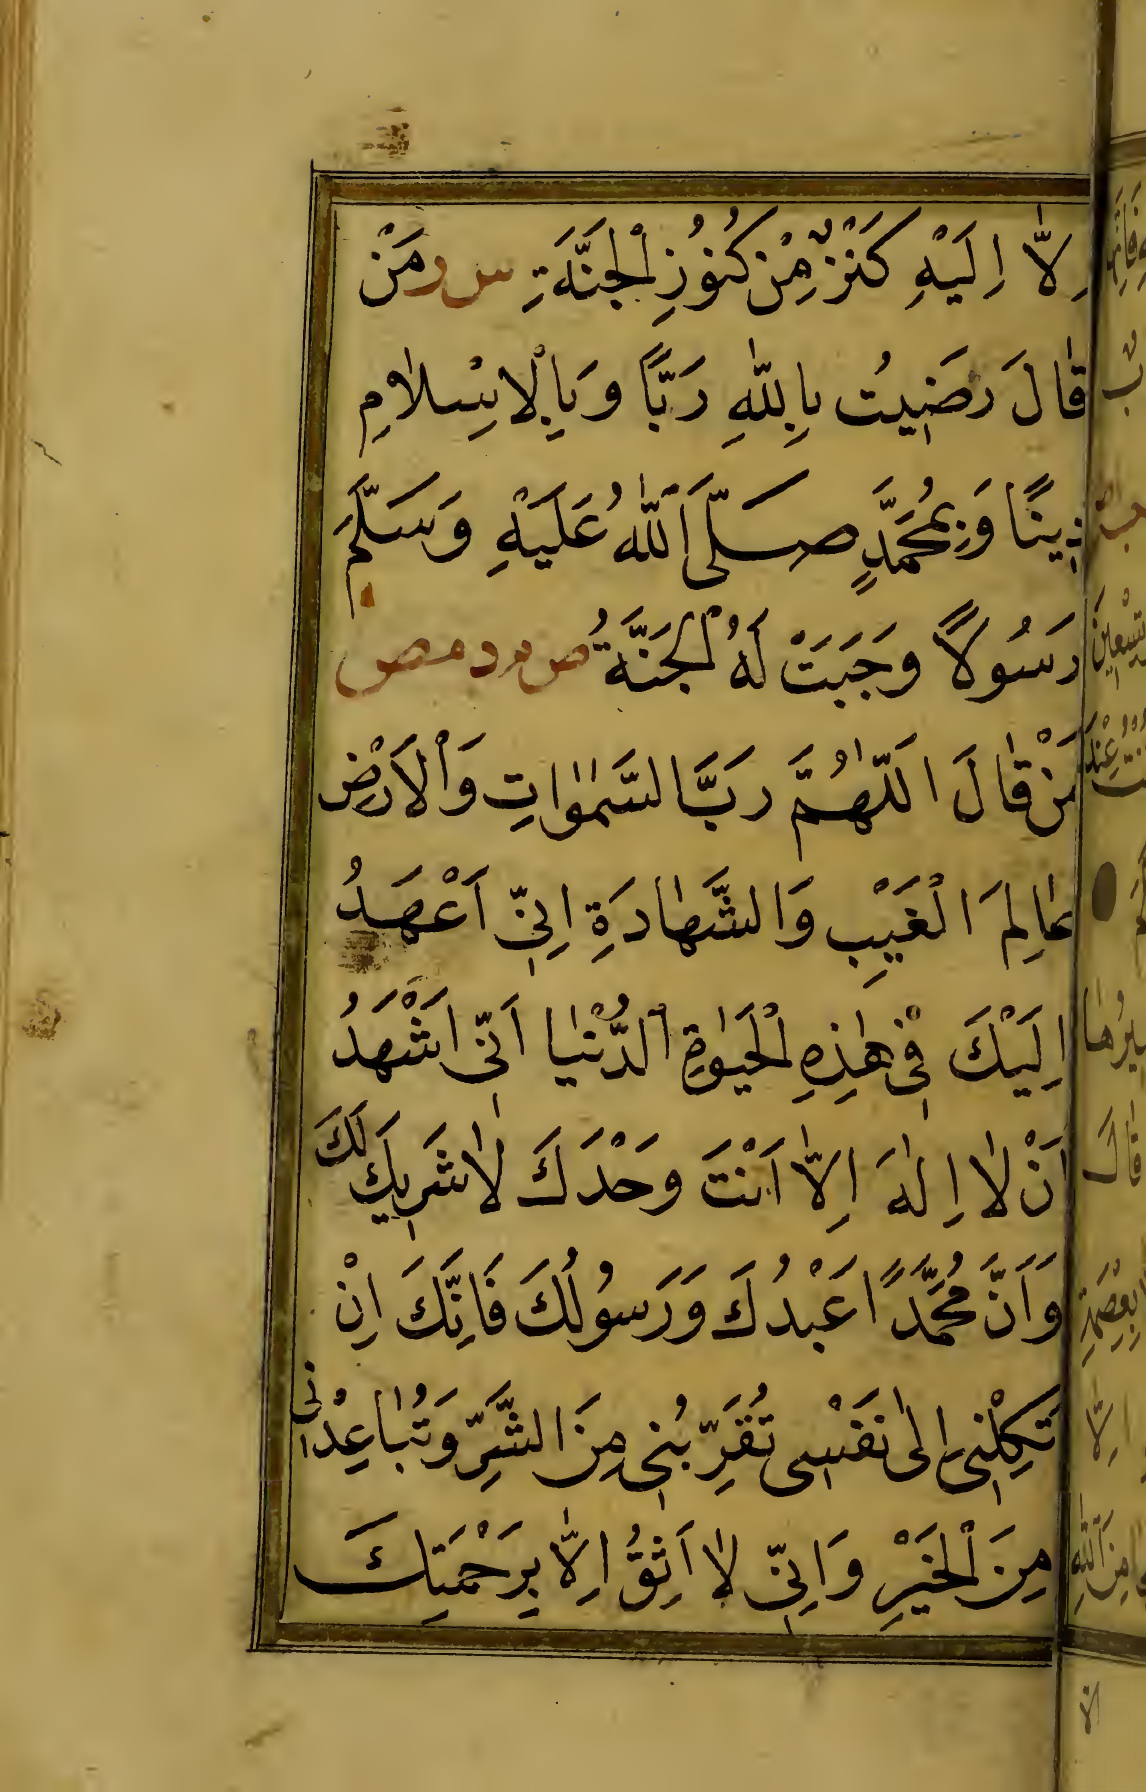 اِلاّٰ اِلَيْهِ كَنْزٌ مِنْ كُنُوزِ الْجَنَّةِ س ر مَنْ
قٰالَ رَضِيتُ بِاللّٰهِ رَبًّا وَبِالْاِسْلاٰمِ
دِينًا وَبِمُحَمَّدٍ صَلَّى اللّٰهُ عَلَيْهِ وَسَلَّمَ
رَسُولًا وَجَبَتْ لَهُ الْجَنَّةُ ص مر د مص
مَنْ قٰالَ اللّٰهُمَّ رَبَّ السَّمٰوٰاتِ وَالْاَرْضِ
عٰالِمَ الْغَيْبِ وَالشَّهٰادَةِ اِنِّي اَعْهَدُ
اِلَيْكَ فِي هٰذِهِ الْحَيٰوةِ الدُّنْيٰا اَنِّي اَشْهَدُ
اَنْ لاٰ اِلٰهَ اِلاّٰ اَنْتَ وَحْدَكَ لاٰ شَرِيكَ لَكَ
وَاَنَّ مُحَمَّدًا عَبْدُكَ وَرَسُولُكَ فَاِنَّكَ اِنْ
تَكِلْنِي اِلىٰ نَفْسِي تُقَرِّبُنِي مِنَ الشَّرِّ وَتُبٰاعِدْنِي
مِنَ الْخَيْرِ وَاِنِّي لاٰ اَثِقُ اِلاّٰ بِرَحْمَتِكَ